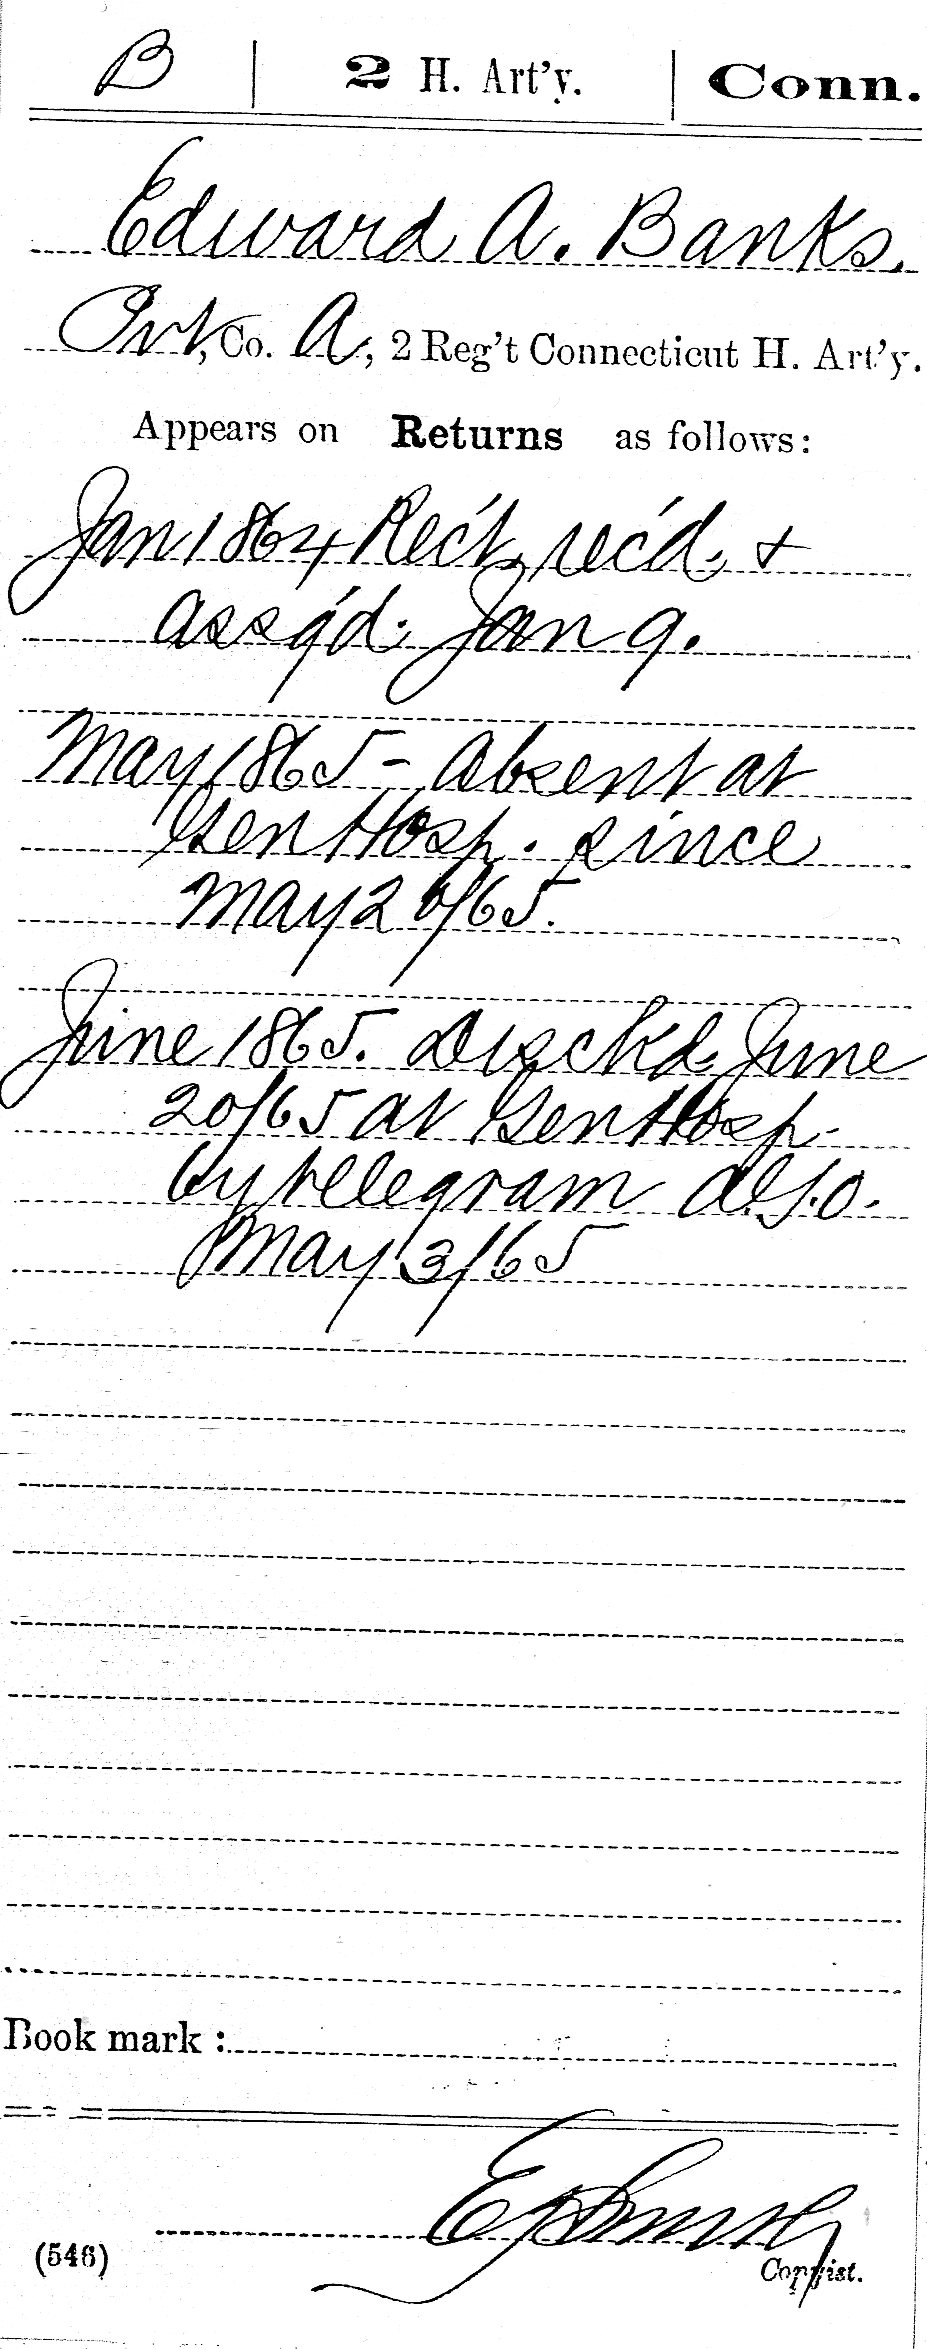 B | 2 H. Art'y. | Conn.
Edward A. Banks.
Pvt, Co. A, 2 Reg't Connecticut H. Art'y.
Appears on Returns as follows:
Jan 1864 Rec't, rec'd, +
ass'g'd. Jan 9.
May 1865 - Absent at
Gen Hosp. since
May 26/65.
June 1865. Disch'd June
20/65 at Gen Hosp.
by telegram A.G.O.
May 3/65
Book mark :
(546)
Copyist.